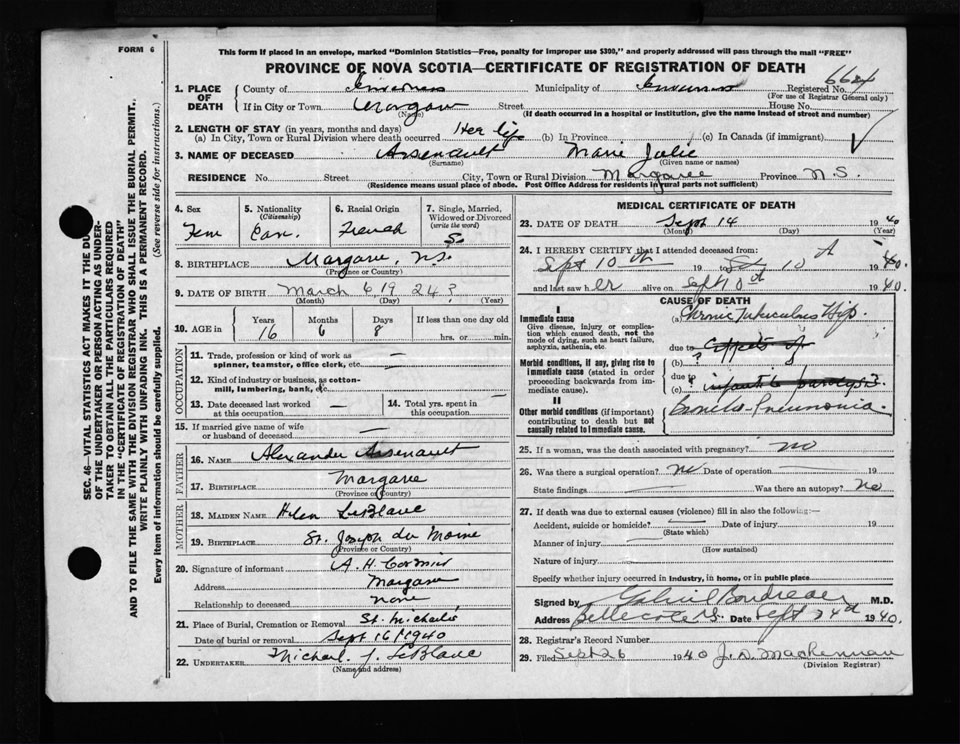 FORM 6
This form if placed in an envelope, marked "Dominion Statistics—Free, penalty for improper use $300," and properly addressed will pass through the mail "FREE"
PROVINCE OF NOVA SCOTIA—CERTIFICATE OF REGISTRATION OF DEATH
6624
1. PLACE OF DEATH County of Inverness Municipality of Inverness Registered No.
(For use of Registrar General only)
If in City or Town Margaree Street House No.
(Name) (If death occurred in a hospital or institution, give the name instead of street and number)
2. LENGTH OF STAY (in years, months and days)
(a) In City, Town or Rural Division where death occurred Her life (b) In Province (c) In Canada (if immigrant)
3. NAME OF DECEASED Arsenault Marie Julie
(Surname) (Given name or names)
RESIDENCE No. Street City, Town or Rural Division Margaree Province N.S.
(Residence means usual place of abode. Post Office Address for residents in rural parts not sufficient)
4. Sex Fem
5. Nationality (Citizenship) Can.
6. Racial Origin French
7. Single, Married, Widowed or Divorced (write the word) S.
8. BIRTHPLACE Margaree, N.S.
(Province or Country)
9. DATE OF BIRTH March 6, 1924?
(Month) (Day) (Year)
10. AGE in Years Months Days If less than one day old
16 6 8 hrs. or min.
OCCUPATION
11. Trade, profession or kind of work as spinner, teamster, office clerk, etc. —
12. Kind of industry or business, as cotton-mill, lumbering, bank, etc. —
13. Date deceased last worked at this occupation —
14. Total yrs. spent in this occupation —
15. If married give name of wife or husband of deceased —
FATHER
16. NAME Alexander Arsenault
17. BIRTHPLACE Margaree
(Province or Country)
MOTHER
18. MAIDEN NAME Helen LeBlanc
19. BIRTHPLACE St. Joseph du Moine
(Province or Country)
20. Signature of informant A. H. Cormier
Address Margaree
Relationship to deceased none
21. Place of Burial, Cremation or Removal St. Michael's
Date of burial or removal Sept 16 1940
22. UNDERTAKER Michael J. LeBlanc
(Name and address)
MEDICAL CERTIFICATE OF DEATH
23. DATE OF DEATH Sept 14 1940
(Month) (Day)
24. I HEREBY CERTIFY that I attended deceased from:
Sept 10th 19 to 10th 1940.
and last saw her alive on Sept 10th 1940.
CAUSE OF DEATH
I
Immediate cause
Give disease, injury or complication which caused death, not the mode of dying, such as heart failure, asphyxia, asthenia, etc.
(a) Chronic Tuberculous Hip.
due to
Morbid conditions, if any, giving rise to immediate cause (stated in order proceeding backwards from immediate cause).
(b) ? effects of
due to
(c) ? infantile paralysis
II
Other morbid conditions (if important) contributing to death but not causally related to immediate cause.
Broncho-Pneumonia.
25. If a woman, was the death associated with pregnancy? no
26. Was there a surgical operation? No Date of operation — 19
State findings — Was there an autopsy? No
27. If death was due to external causes (violence) fill in also the following:—
Accident, suicide or homicide? — Date of injury 19
(State which)
Manner of injury —
(How sustained)
Nature of injury —
Specify whether injury occurred in industry, in home, or in public place
Signed by Gabriel Boudreau M.D.
Address Belle Cote N.S. Date Sept 24th 1940.
28. Registrar's Record Number
29. Filed Sept 26 1940 J. D. MacKennan
(Division Registrar)
SEC. 46—VITAL STATISTICS ACT MAKES IT THE DUTY
OF THE UNDERTAKER OR PERSON ACTING AS UNDER-
TAKER TO OBTAIN ALL THE PARTICULARS REQUIRED
IN THE "CERTIFICATE OF REGISTRATION OF DEATH"
AND TO FILE THE SAME WITH THE DIVISION REGISTRAR WHO SHALL ISSUE THE BURIAL PERMIT.
WRITE PLAINLY WITH UNFADING INK. THIS IS A PERMANENT RECORD.
Every item of information should be carefully supplied. (See reverse side for instructions.)